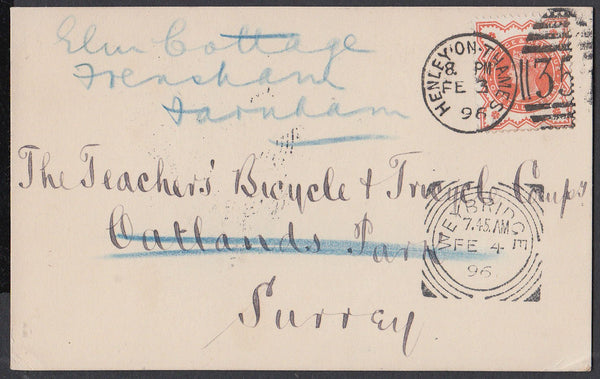 Elm Cottage
Frensham
Farnham
HENLEY-ON-THAMES
8 PM
FE 3
96
The Teachers' Bicycle & Tricycle Comp'y
WEYBRIDGE
7.45.AM
FE 4
96
Oatlands Park
Surrey